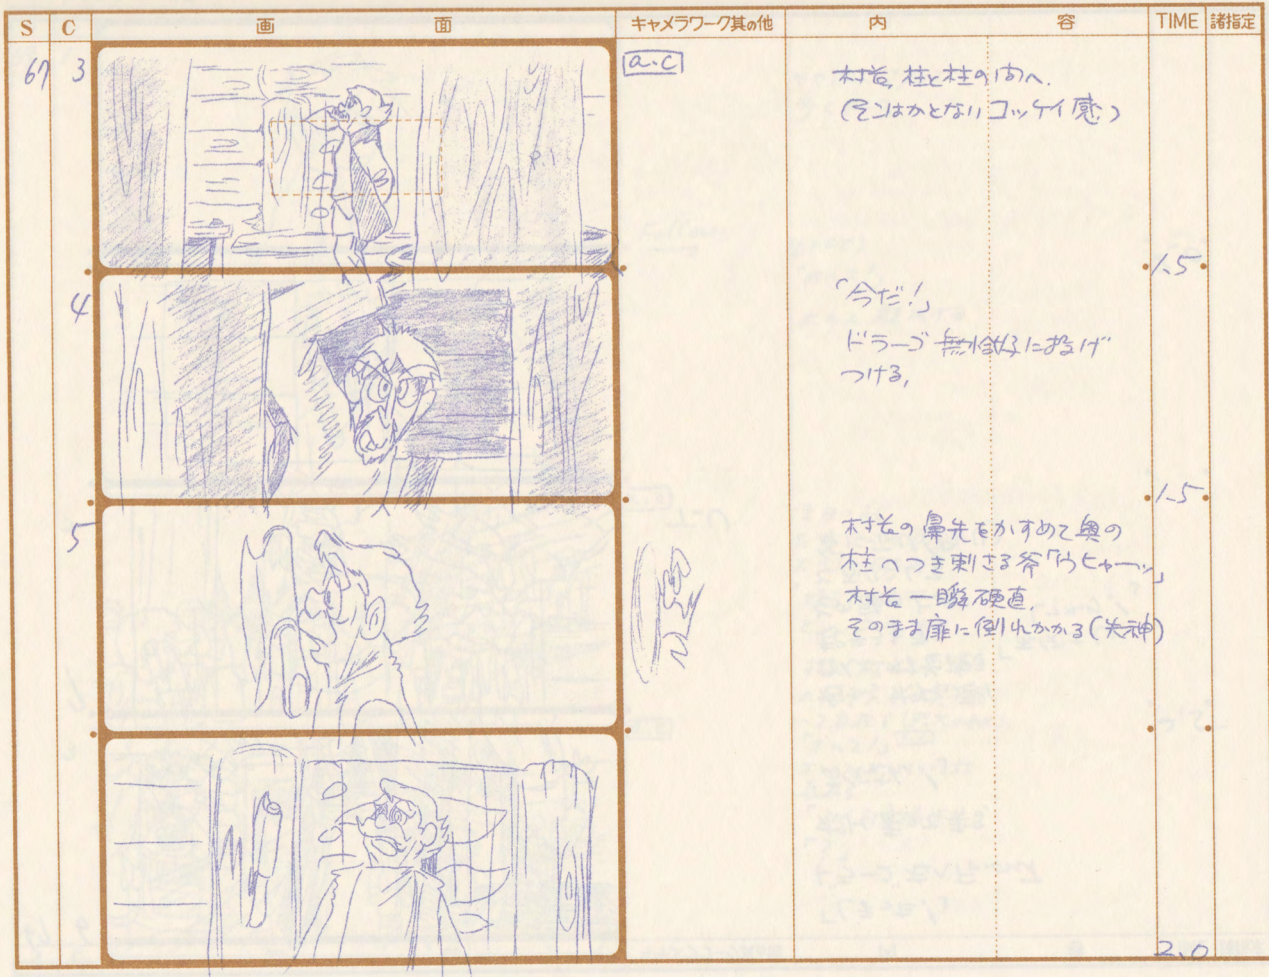 S C 画 面 キャメラワーク其の他 内 容 TIME 諸指定
67 3 a.c 村长、柱と柱の間へ.
(そこはかとない コッケイ感.)
P.1
1.5
4 「今だ!」
ドラーゴ 無恰好に投げ
つける。
1.5
5 村长の鼻先をかすめて奥の
柱へつき刺さる斧「ウヒャーッ」
村长一瞬硬直.
そのまま扉に倒れかかる(失神)
2.0